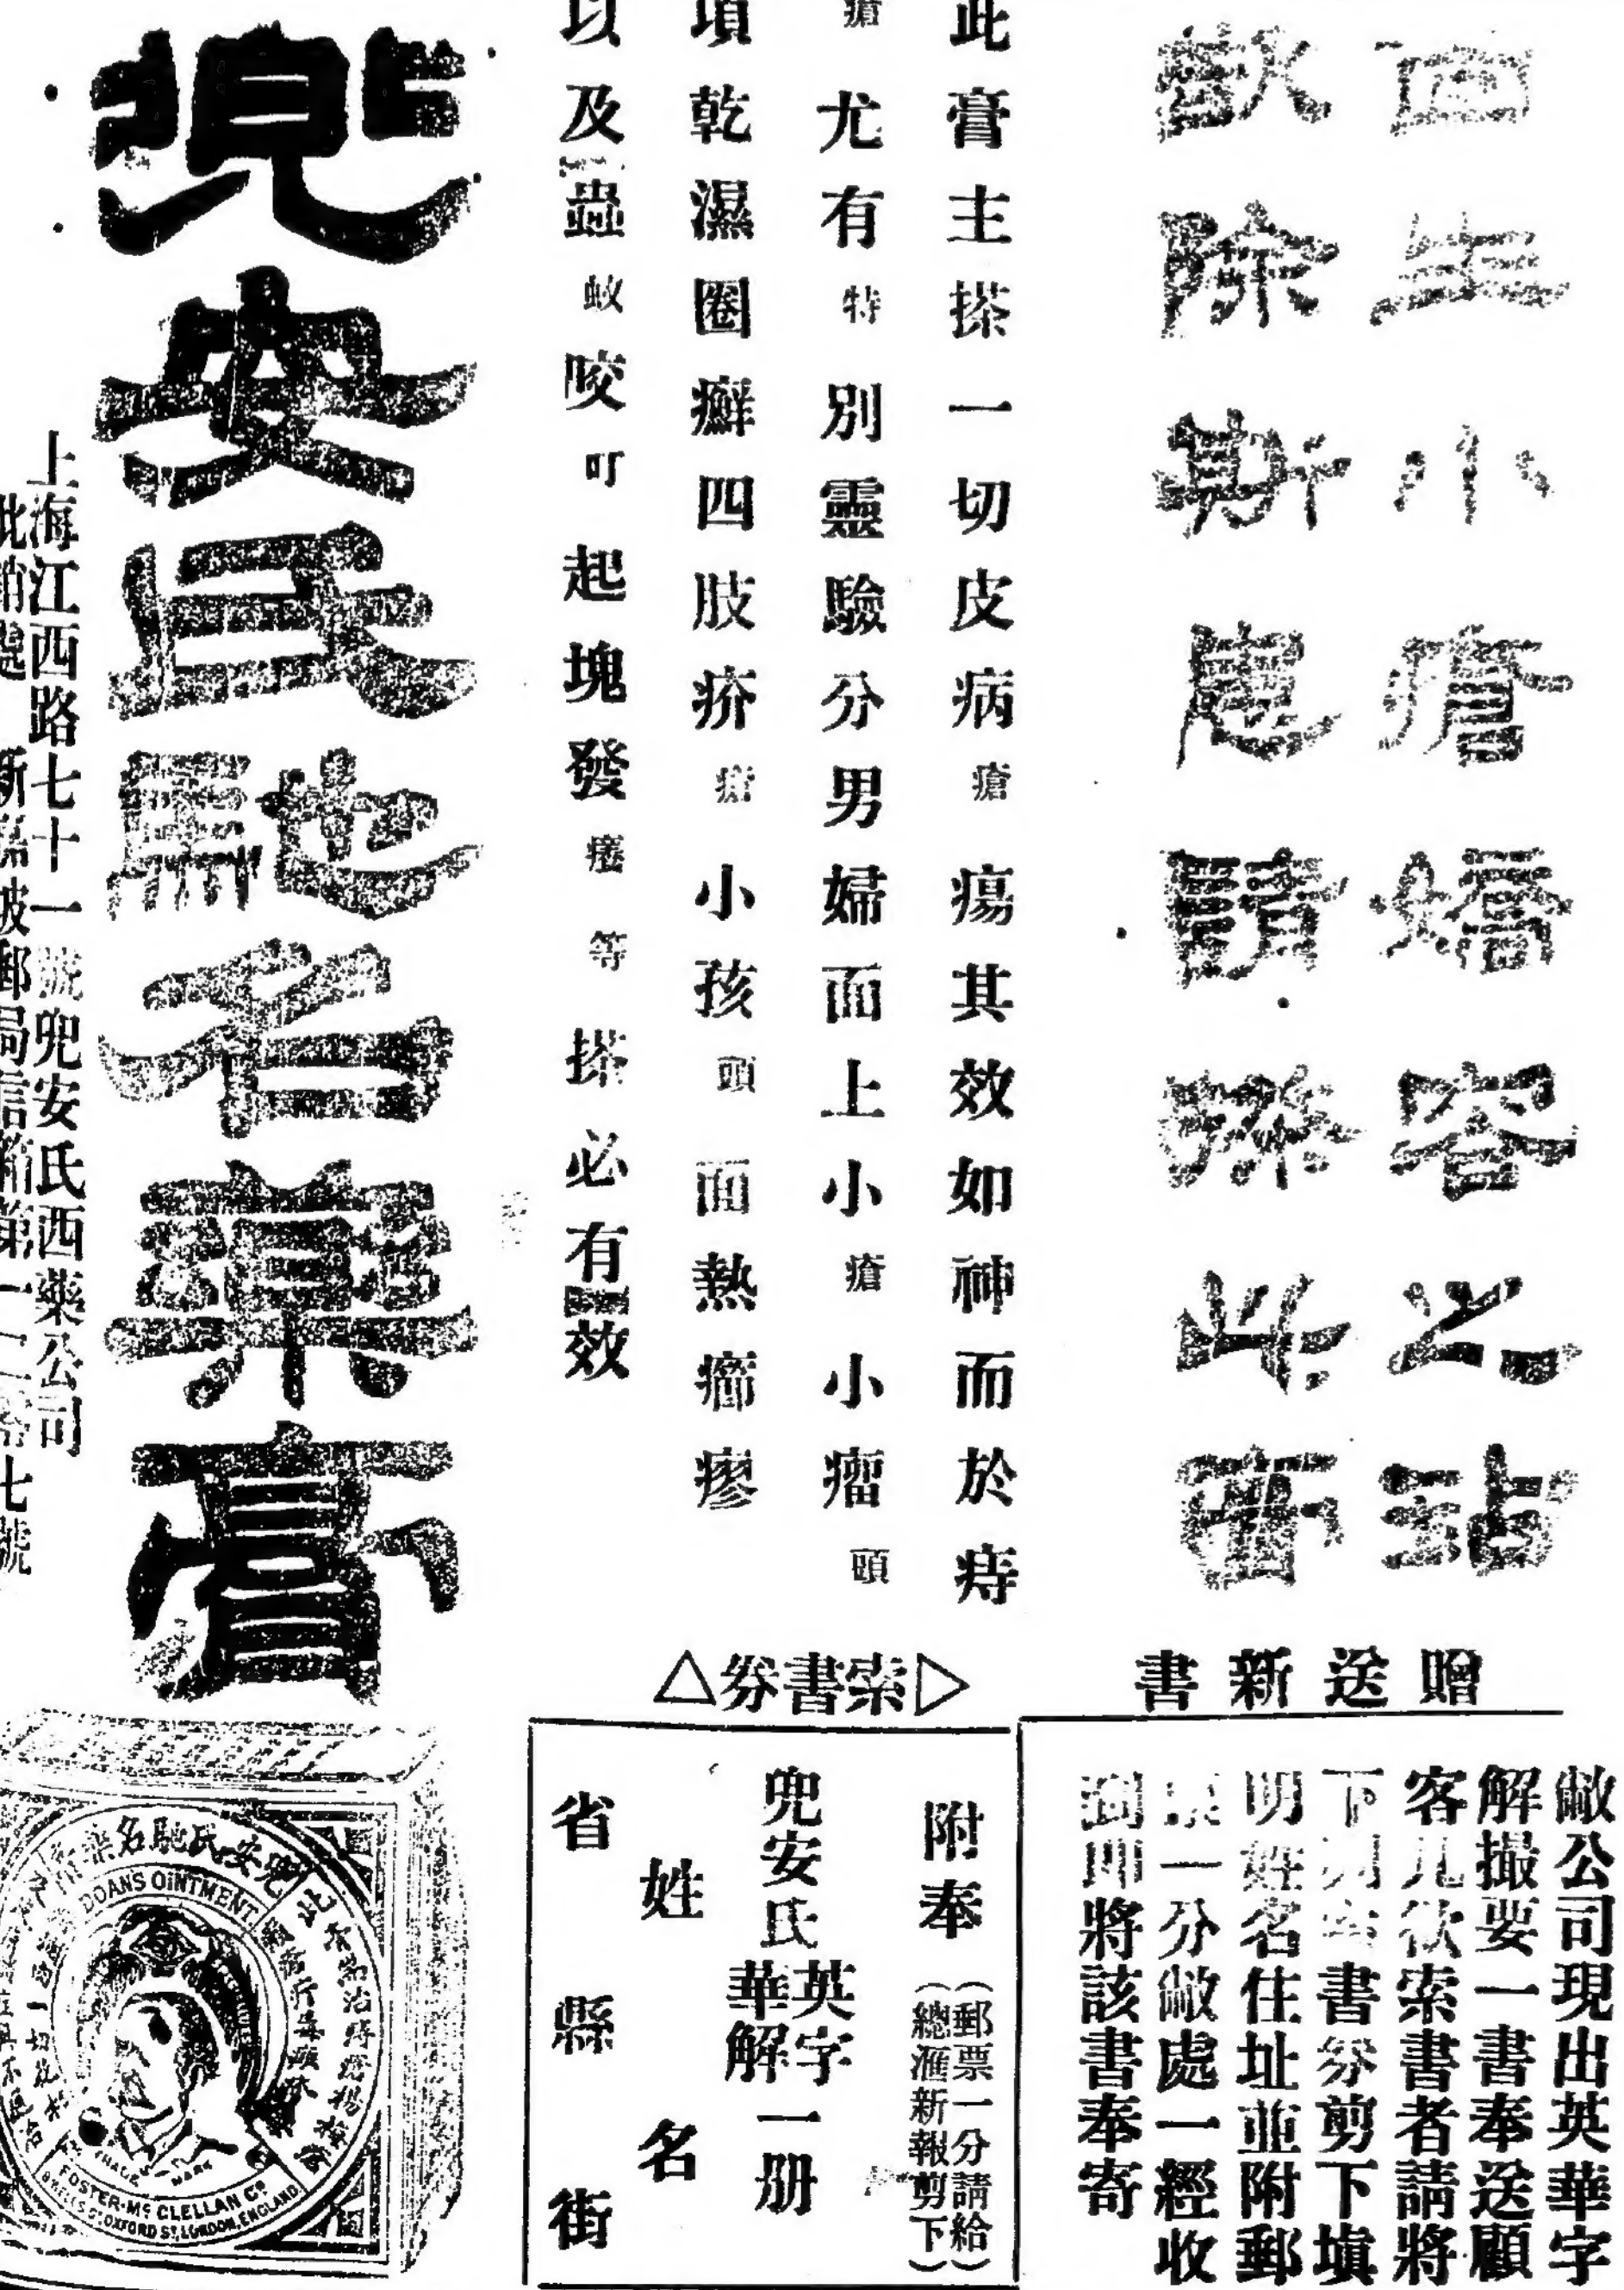 面生小瘡嬌容之玷
欲除斯患請搽此膏
此膏主搽一切皮病瘡瘍其效如神而於痔
瘡尤有特別靈驗分男婦面上小瘡小瘤頭
項乾濕圈癬四肢疥瘡小孩頭面熱癤瘮
以及蟲蚊咬叮起塊發癢等搽必有效
兜安氏馳名藥膏
上海江西路七十一號兜安氏西藥公司
新嘉坡郵局信箱第一二零七號
贈送新書
敝公司現出英華字
解撮要一書奉送顧
客凡欲索書者請將
下列索書券剪下填
明姓名住址並附郵
票一分敝處一經收
到即將該書奉寄
▷索書券△
附奉(郵票一分請給)
(總滙新報剪下)
兜安氏英字華解一册
姓名
省縣街
兜安氏馳名藥膏
DOANS OINTMENT
TRADE MARK
FOSTER-McCLELLAN Co
8 WELLS St OXFORD ST, LONDON, ENGLAND